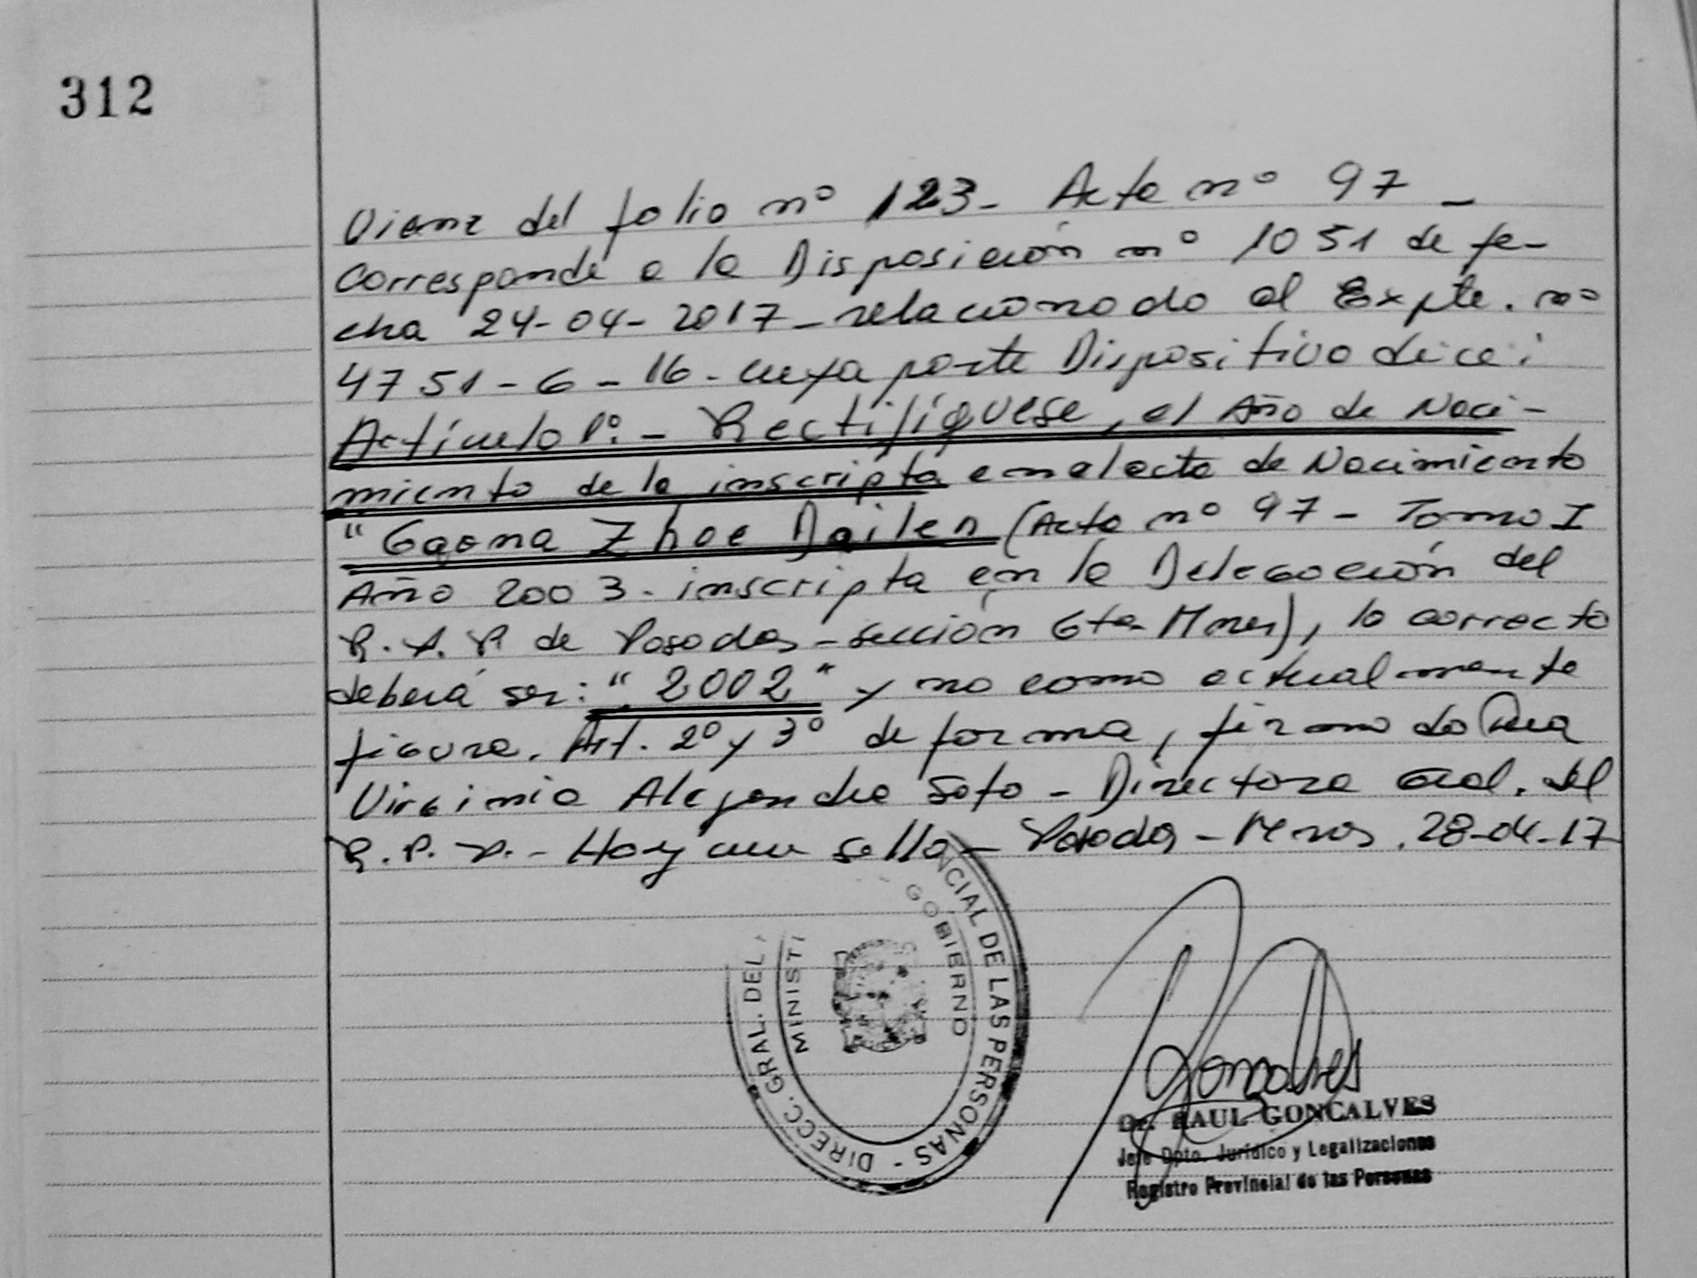 312
Viene del folio nº 123- Acta nº 97 -
Corresponde a la Disposición nº 1051 de fe-
cha 24-04-2017- relacionado al Expte. nº
4751-G-16- cuya parte Dispositiva dice:
Artículo 1º:- Rectifíquese, el Año de Naci-
miento de la inscripta en el acta de Nacimiento
"Gaona Zhoe Dailen (Acta nº 97 - Tomo I
Año 2003- inscripta en la Delegación del
R.P.P de Posadas - sección 6ta Mnes), lo correcto
deberá ser: "2002" y no como actualmente
figura. Art. 2º y 3º de forma, firmado
Virginia Alejandra Soto - Directora Gral. del
R.P.P.- Hay un sello- Posadas - Mnes. 28-04-17
DIRECC. GRAL. DEL NCIAL DE LAS PERSONAS -
MINISTE GOBIERNO
Goncalves
Dr. RAUL GONCALVES
Jefe Dpto. Jurídico y Legalizaciones
Registro Provincial de las Personas